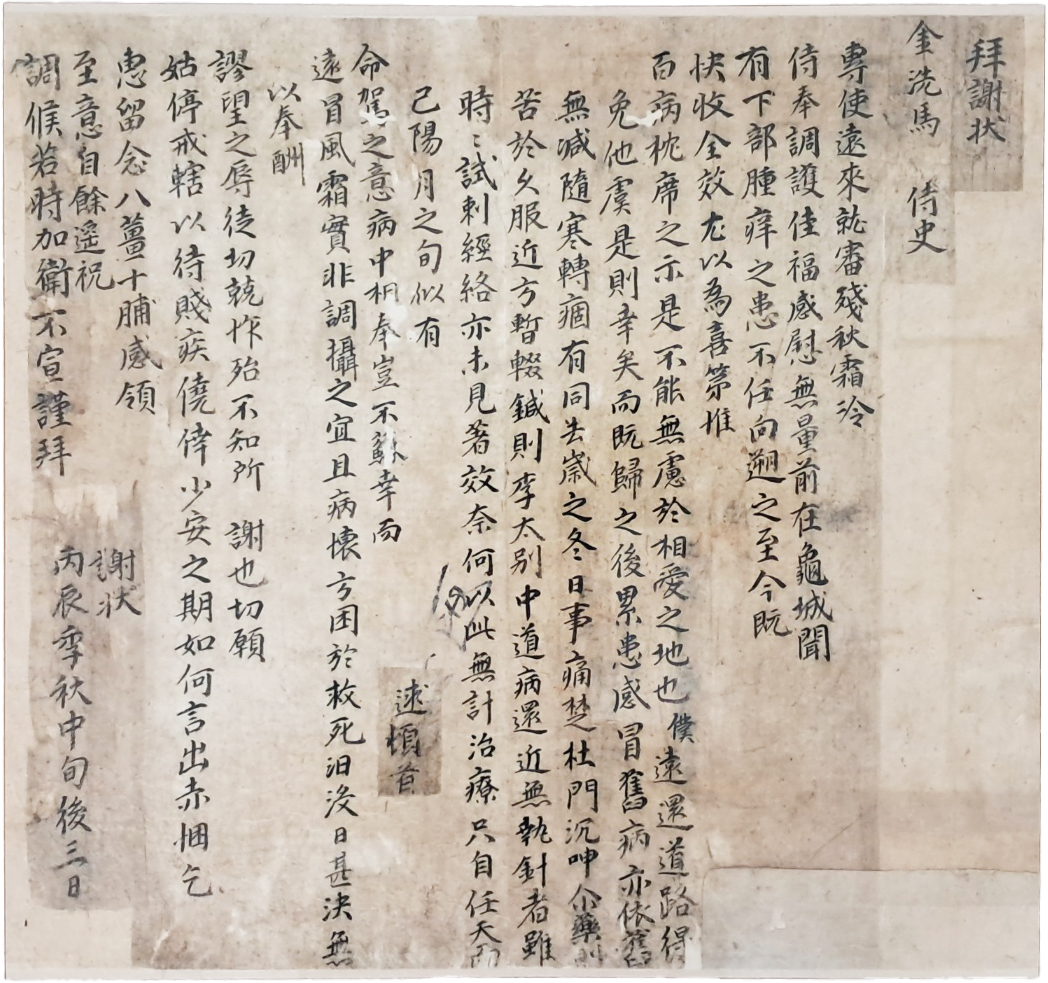 拜謝狀
金洗馬 侍史
專使遠來就審殘秋霜冷
侍奉調護佳福感慰無量前在龜城聞
有下部腫痒之患不任向遡之至今既
快收全效尤以為喜第惟
百病枕席之示是不能無慮於相愛之地也僕遠還道路得
免他虞是則幸矣而既歸之後累患感冒舊病亦依舊
無减隨寒轉痼有同去歲之冬日事痛楚杜門沉呻尒藥則
苦於久服近方暫輟鍼則李太別中道病還近無執針者雖
時〻試刺經絡亦未見著效奈何以此無計治療只自任天
已陽月之旬似有
命駕之意病中枬奉豈不蘇幸而
遠冒風霜實非調攝之宜且病懐方困於救死汩沒日甚決無
以奉酬
謬望之辱徒切兢怍殆不知所 謝也切願
姑停戒轄以待賤疾僥倖少安之期如何言出赤悃乞
惠留念八薑十脯感領
至意自餘遥祝
調候若時加衛不宣謹拜
謝狀
丙辰季秋中旬後三日
逑頓首